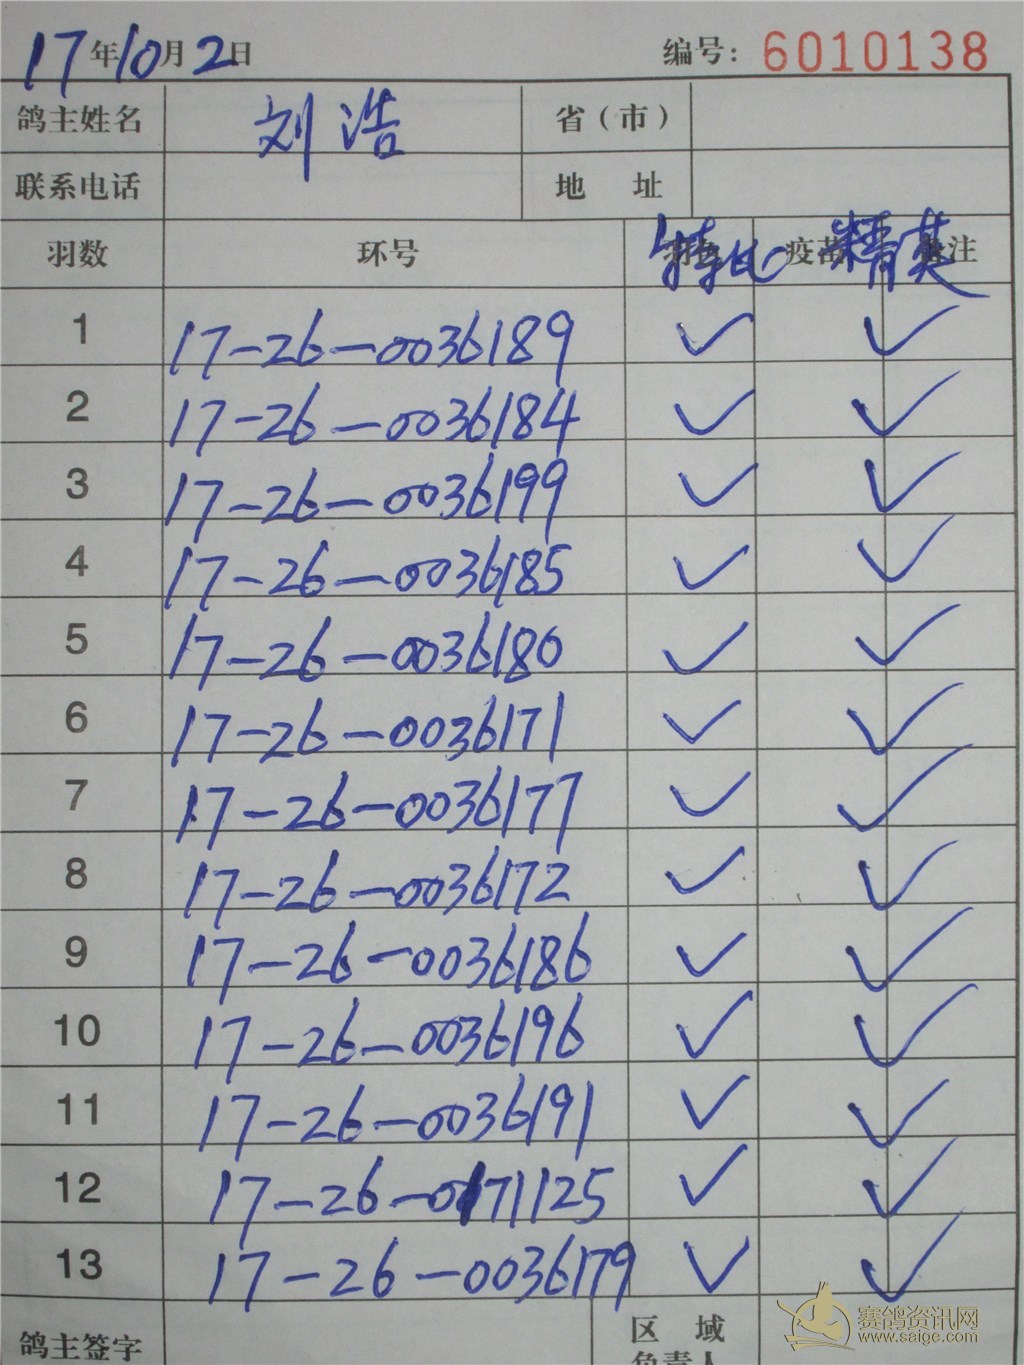 17年10月2日 编号: 6010138
鸽主姓名 刘浩 省(市)
联系电话 地 址
羽数 环号 特比 疫苗 精英 备注
1 17-26-0036189 ✓ ✓
2 17-26-0036184 ✓ ✓
3 17-26-0036199 ✓ ✓
4 17-26-0036185 ✓ ✓
5 17-26-0036180 ✓ ✓
6 17-26-0036171 ✓ ✓
7 17-26-0036177 ✓ ✓
8 17-26-0036172 ✓ ✓
9 17-26-0036186 ✓ ✓
10 17-26-0036196 ✓ ✓
11 17-26-0036191 ✓ ✓
12 17-26-0171125 ✓ ✓
13 17-26-0036179 ✓ ✓
鸽主签字 区 域
负责人
赛鸽资讯网
www.saige.com